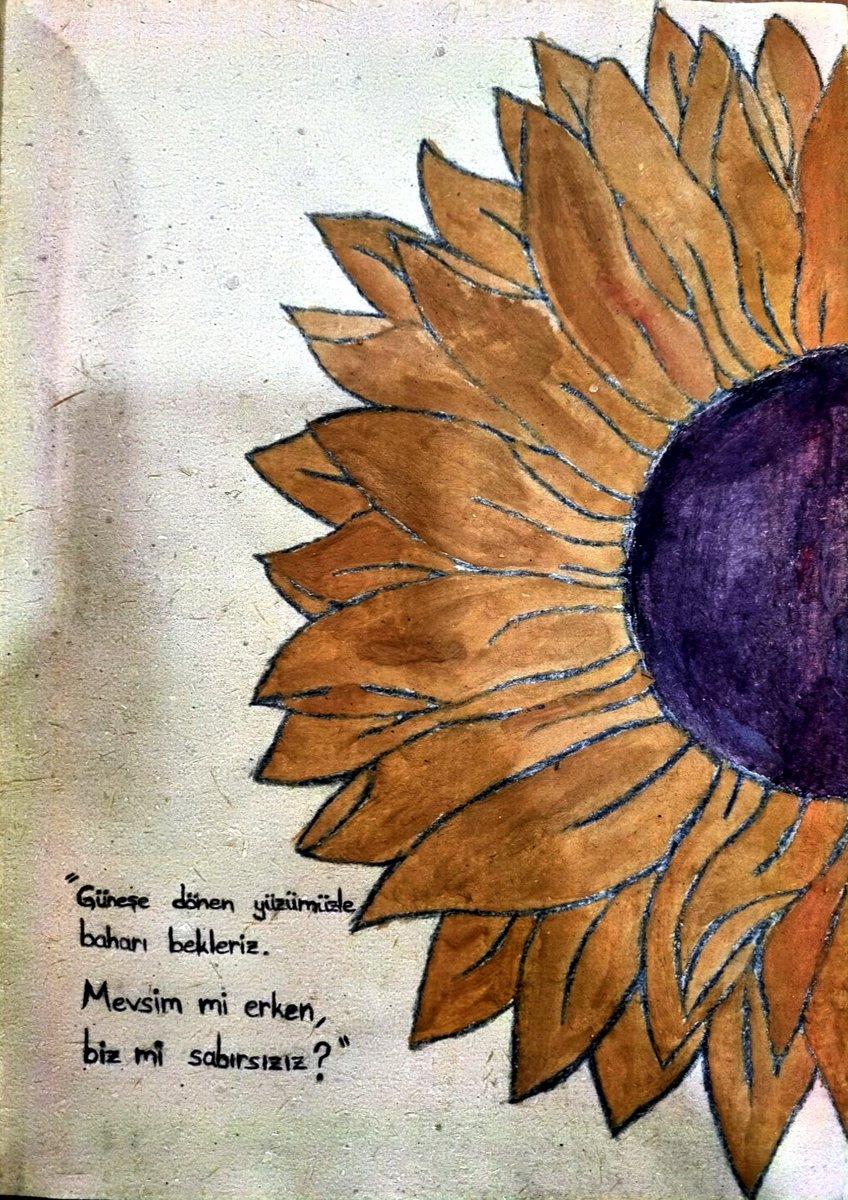 "Güneşe dönen yüzümüzle
baharı bekleriz.
Mevsim mi erken,
biz mi sabırsızız?"